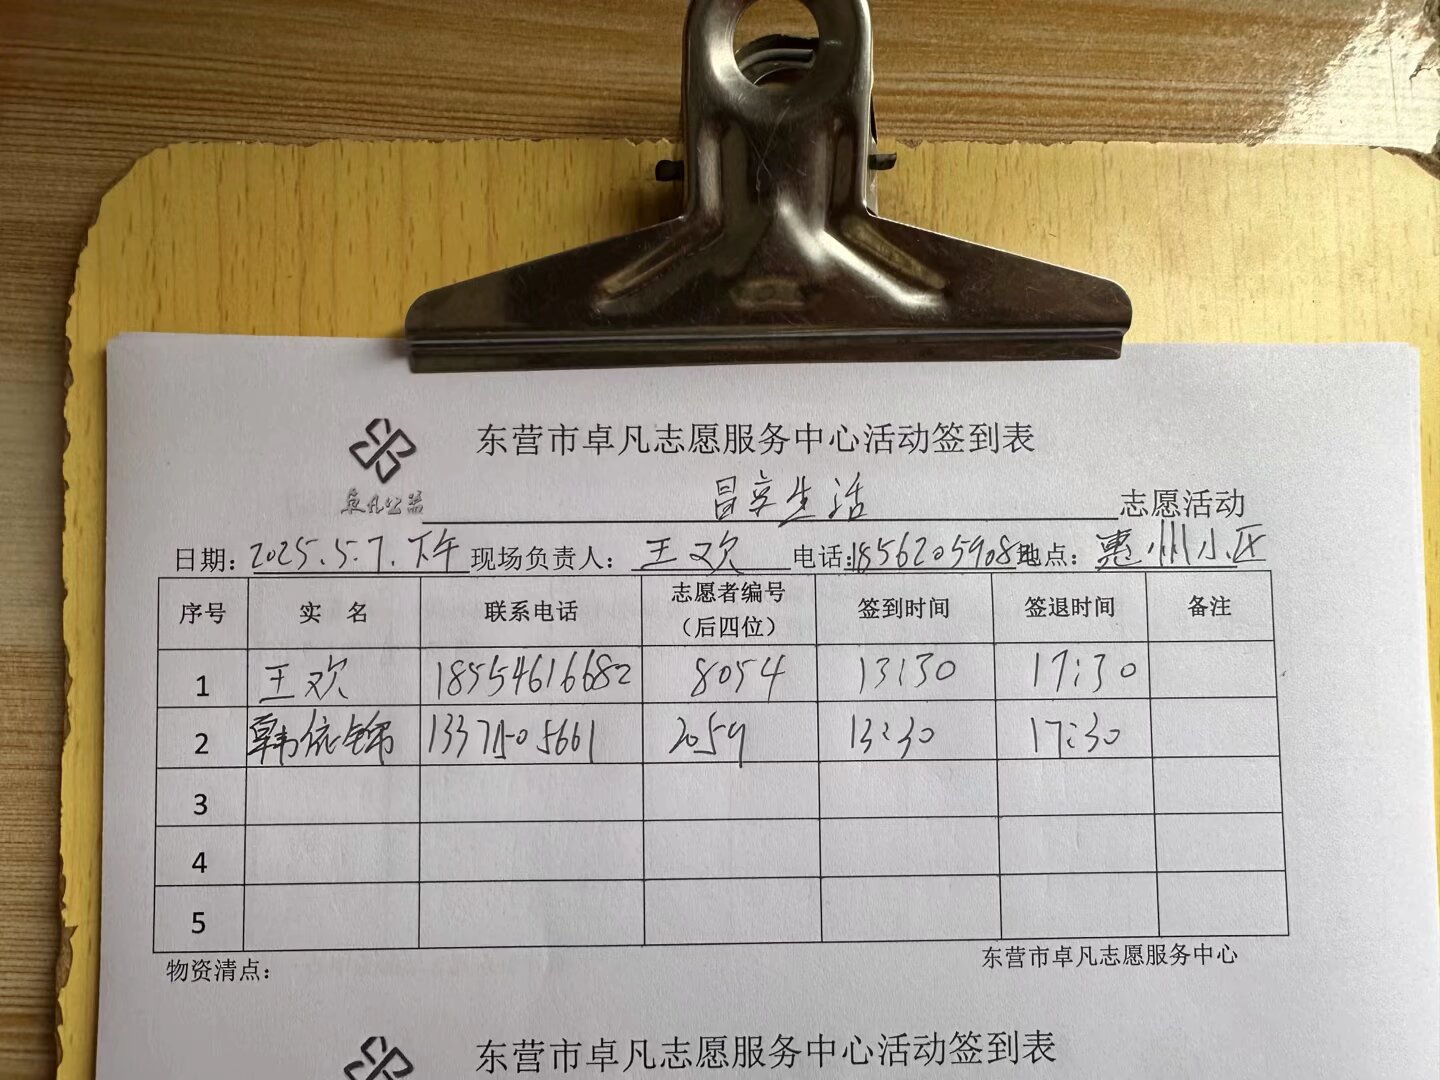 东营市卓凡志愿服务中心活动签到表
卓凡公益 昌享生活 志愿活动
日期: 2025.5.7.下午 现场负责人: 王欢 电话: 18562059082 地点: 惠州小区
序号 实 名 联系电话 志愿者编号（后四位） 签到时间 签退时间 备注
1 王欢 18554616682 8054 13:30 17:30
2 韩依锦 13371505661 2059 13:30 17:30
3
4
5
物资清点: 东营市卓凡志愿服务中心
东营市卓凡志愿服务中心活动签到表